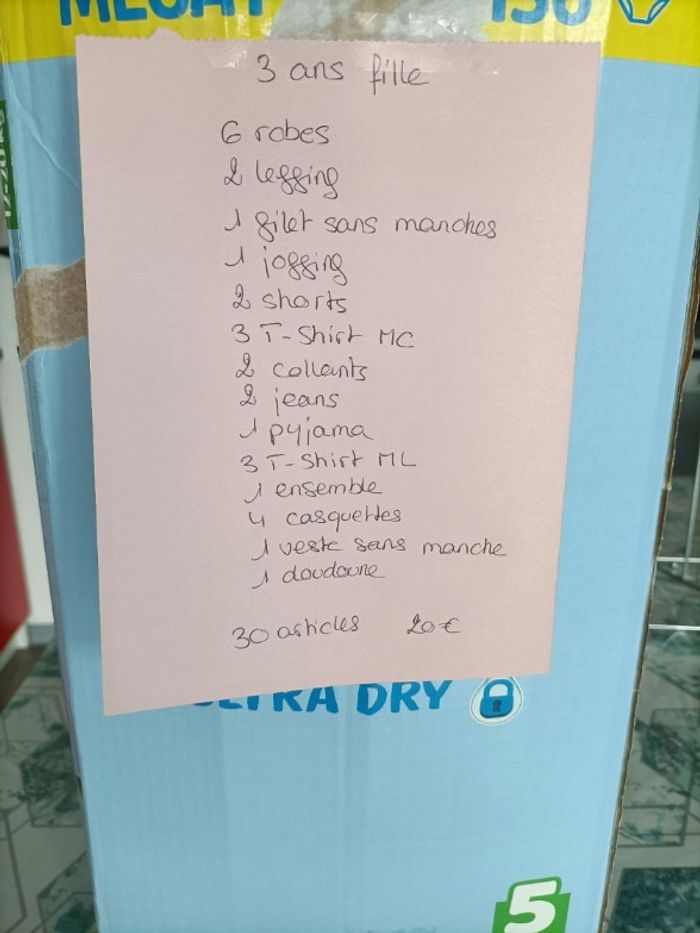 3 ans fille
6 robes
2 legging
1 gilet sans manches
1 jogging
2 shorts
3 T-Shirt MC
2 collants
2 jeans
1 pyjama
3 T-Shirt ML
1 ensemble
4 casquettes
1 veste sans manche
1 doudoune
30 articles 20€
DRY
5